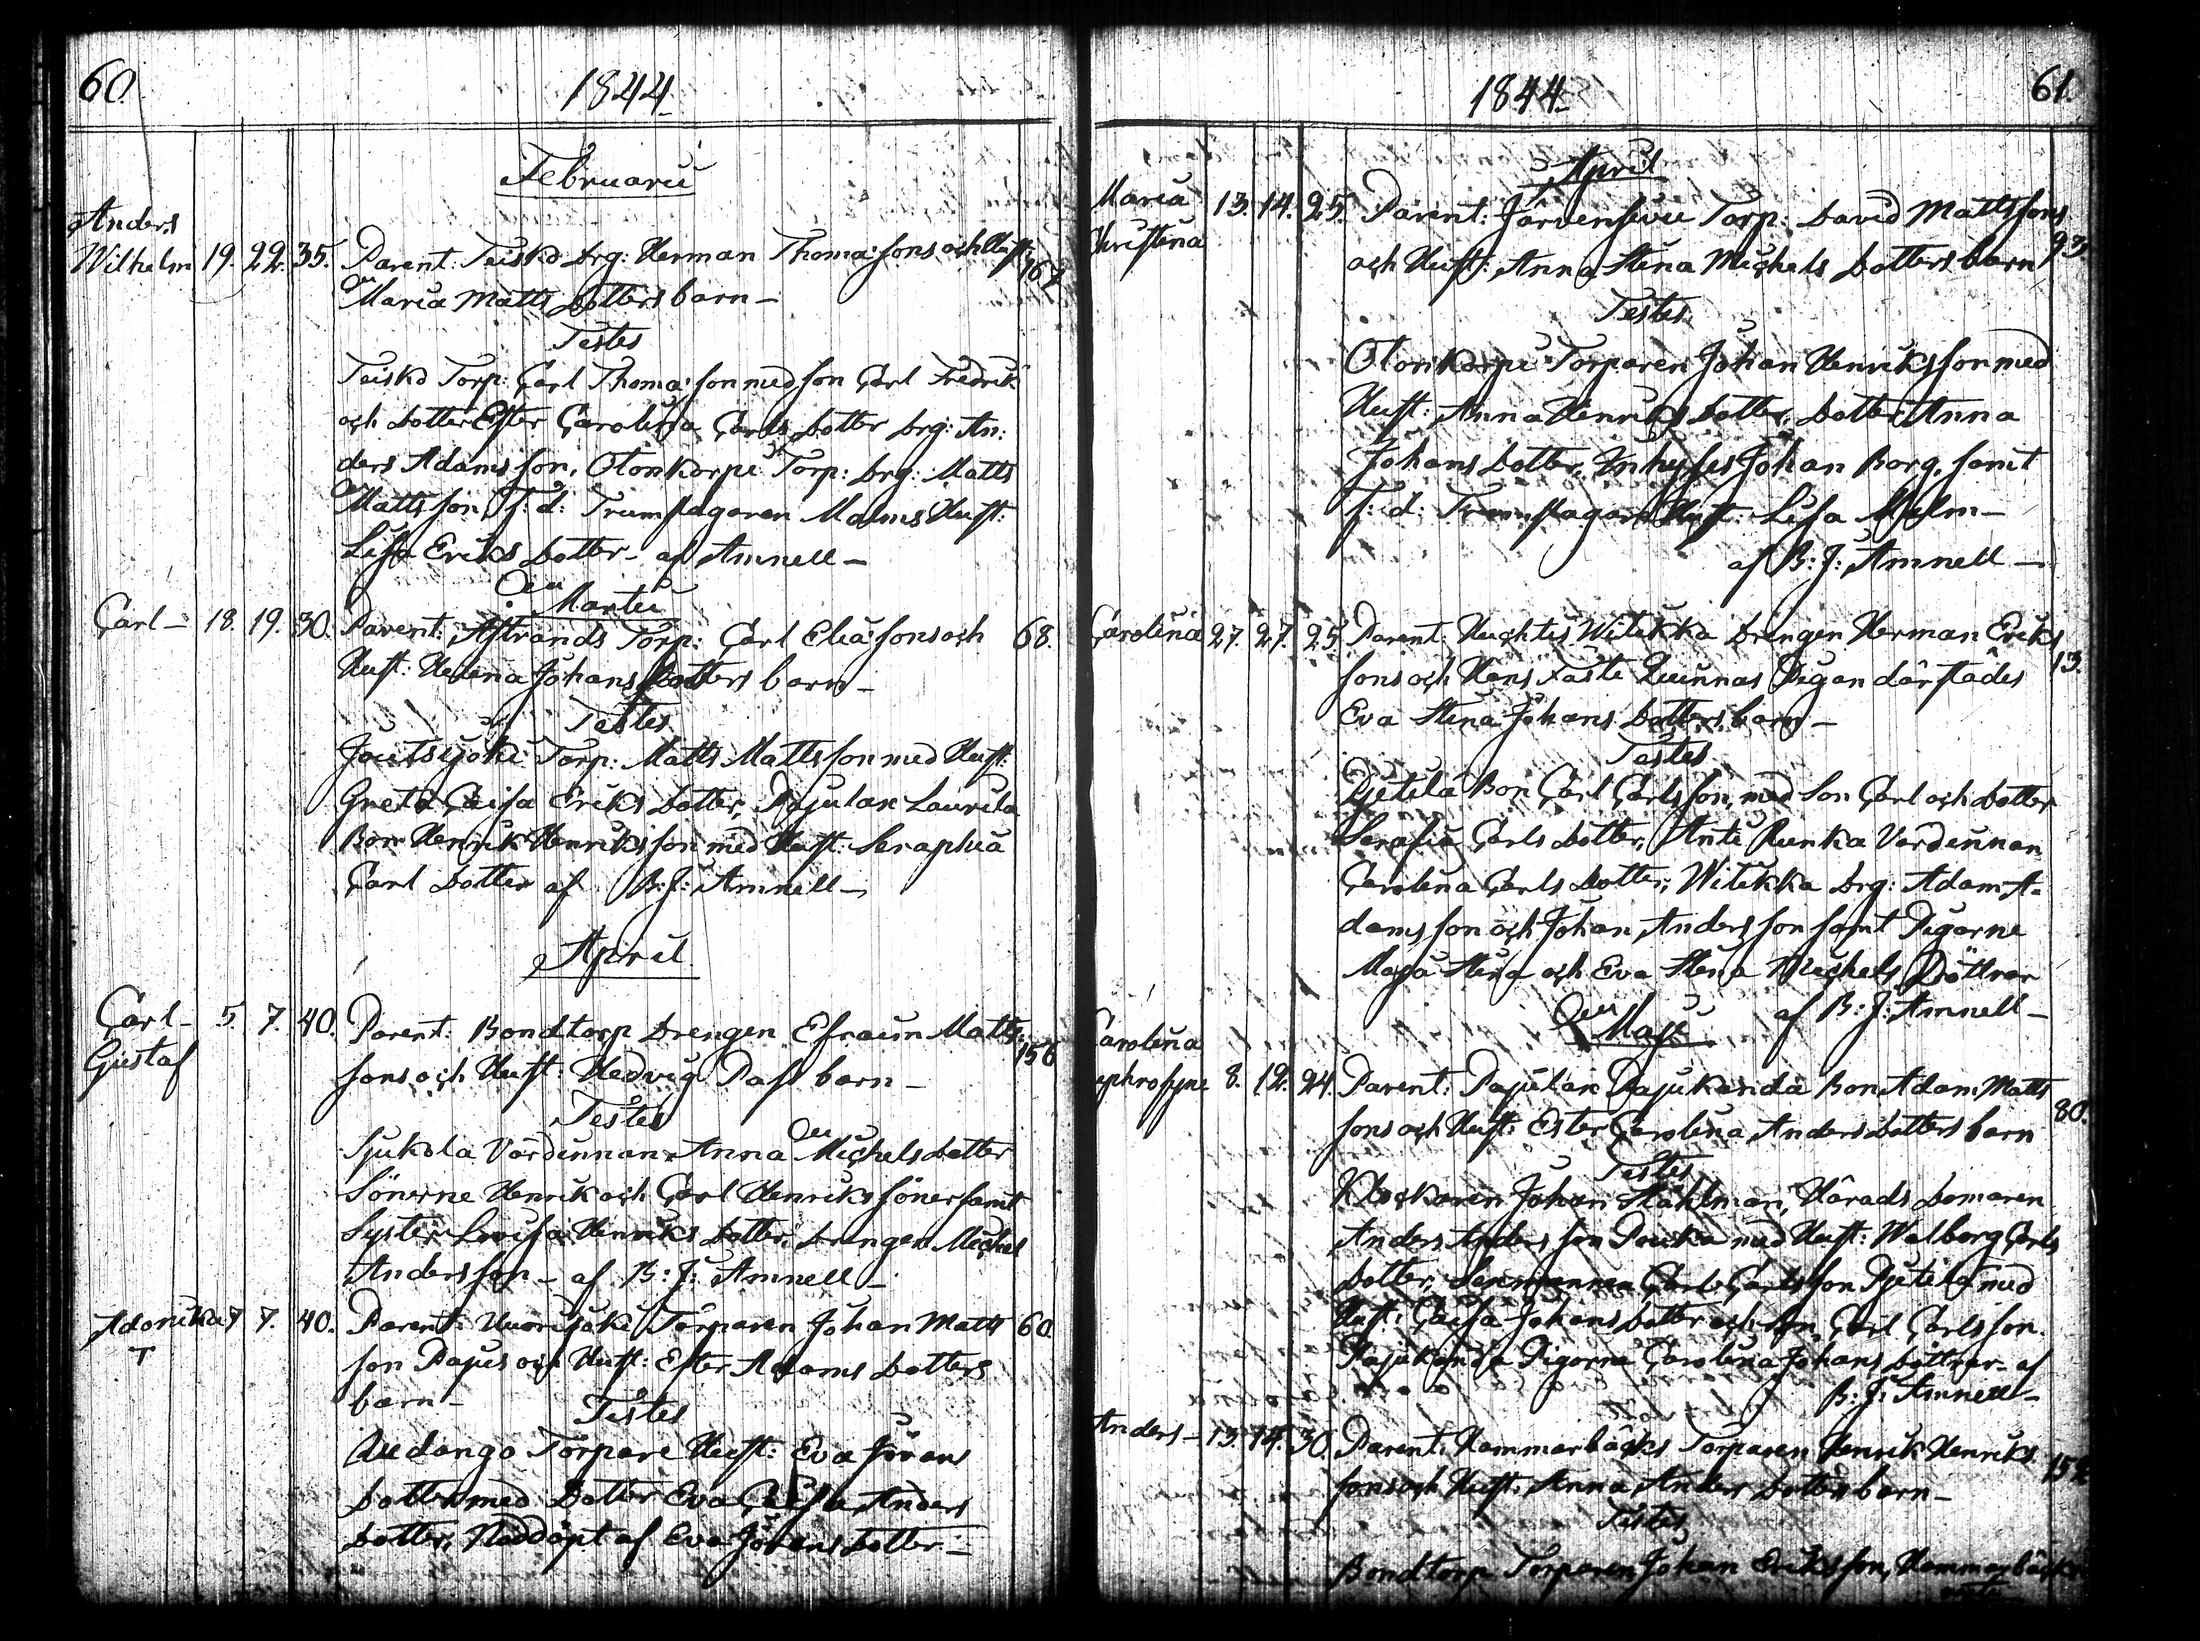 60.
1844.
Februarii
Anders
Wilhelm 19. 22. 35. Parent: Teisko Drg: Herman Thomæsons och Hust: 162
Maria Matts Dotters barn —
Testes
Teisko Torp: Carl Thomæson med son Carl Fredrik
och Dotter Ester Carolina Carls Dotter Drg: An:
ders Adamsson, Otonkorpi Torp: Drg: Matts
Mattsson, F: d: Trumslagaren Malms Hust:
Lisa Eriks Dotter — af Amnell —
Martii
Carl — 18. 19. 30. Parent: Åstrands Torp: Carl Eliæsons och 68.
Hust: Helena Johans Dotters barn —
Testes
Joutsijoki Torp: Matts Mattsson med Hust:
Greta Caisa Eriks Dotter, Pajulax Laurila
Bon Henrik Henriksson med Hust: Seraphia
Carl Dotter af B: J: Amnell —
April
Carl — 5. 7. 40. Parent: Bondtorp Drengen Efraim Matts 156
Gustaf
sons och Hust: Hedvig Pass barn —
Testes
Sjukola Värdinnan Anna Michels Dotter
Sönerne Henrik och Carl Henriks söner samt
Syster Lovisa Henriks Dotter, Drengen Michel
Andersson — af B: J: Amnell —
Adonika 7 7. 40. Parent: Huorisjoki Torparen Johan Matts 60.
†
son Pajus och Hust: Ester Adams Dotters
barn —
Testes
Uudango Torpare Hust: Eva Jörans
Dotter med Dotter Eva Caisa Anders
Dotter, Nöddöpt af Eva Jörans Dotter —
1844.
61.
April
Maria 13. 14. 25. Parent: Järvensivu Torp: David Mattssons
Christina
och Hust: Anna Stina Michels Dotters barn 93.
Testes
Otonkorpi Torparen Johan Henriksson med
Hust: Anna Henriks Dotter, Dotter Anna
Johans Dotter, Inhyses Johan Borg, samt
F: d: Trumslagare Hust: Lisa Malm —
af B: J: Amnell —
Carolina 27. 27. 25. Parent: Huchtis Witikka Drengen Herman Eriks 13.
sons och Hans Fäste Quinnas Pigan därstädes
Eva Stina Johans Dotters barn —
Testes
Pjetila Bon Carl Carlsson, med Son Carl och Dotter
Serafia Carls Dotter, Anti Runka Värdinnan
Carolina Carls Dotter, Witikka Drg: Adam A-
damsson och Johan Andersson samt Pigorne
Maja Stina och Eva Stina Michels Döttrar
af B: J: Amnell —
Maji
Carolina
ephrosyne 8. 12. 24. Parent: Pajulax Pajukanda Bon Adam Matts 80.
sons och Hust: Ester Carolina Anders Dotters barn
Testes
Klockaren Johan Ståhlman, Härads Domaren
Anders Andersson Pouka med Hust: Walborg Carls
Dotter, Carl Carlsson Pjetilä med
Hust: Caisa Johans Dotter och Son Carl Carlsson.
Pajukanda Pigorna Carolina Johans Döttrar af
B: J: Amnell —
Anders — 13. 14. 30. Parent: Hammarbäcks Torparen Henrik Henriks 152
sons och Hust: Anna Anders Dotters barn —
Testes
Bondtorp Torparen Johan Eriksson, Hammarbäcks